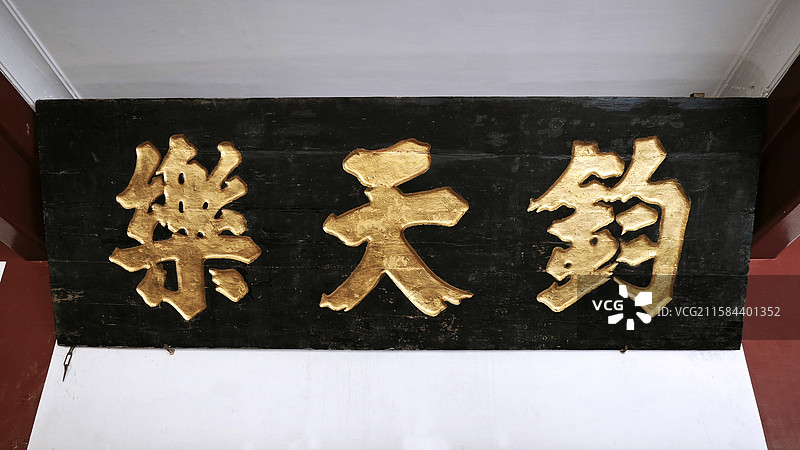 鈞天樂
VCG ID:VCG211584401352